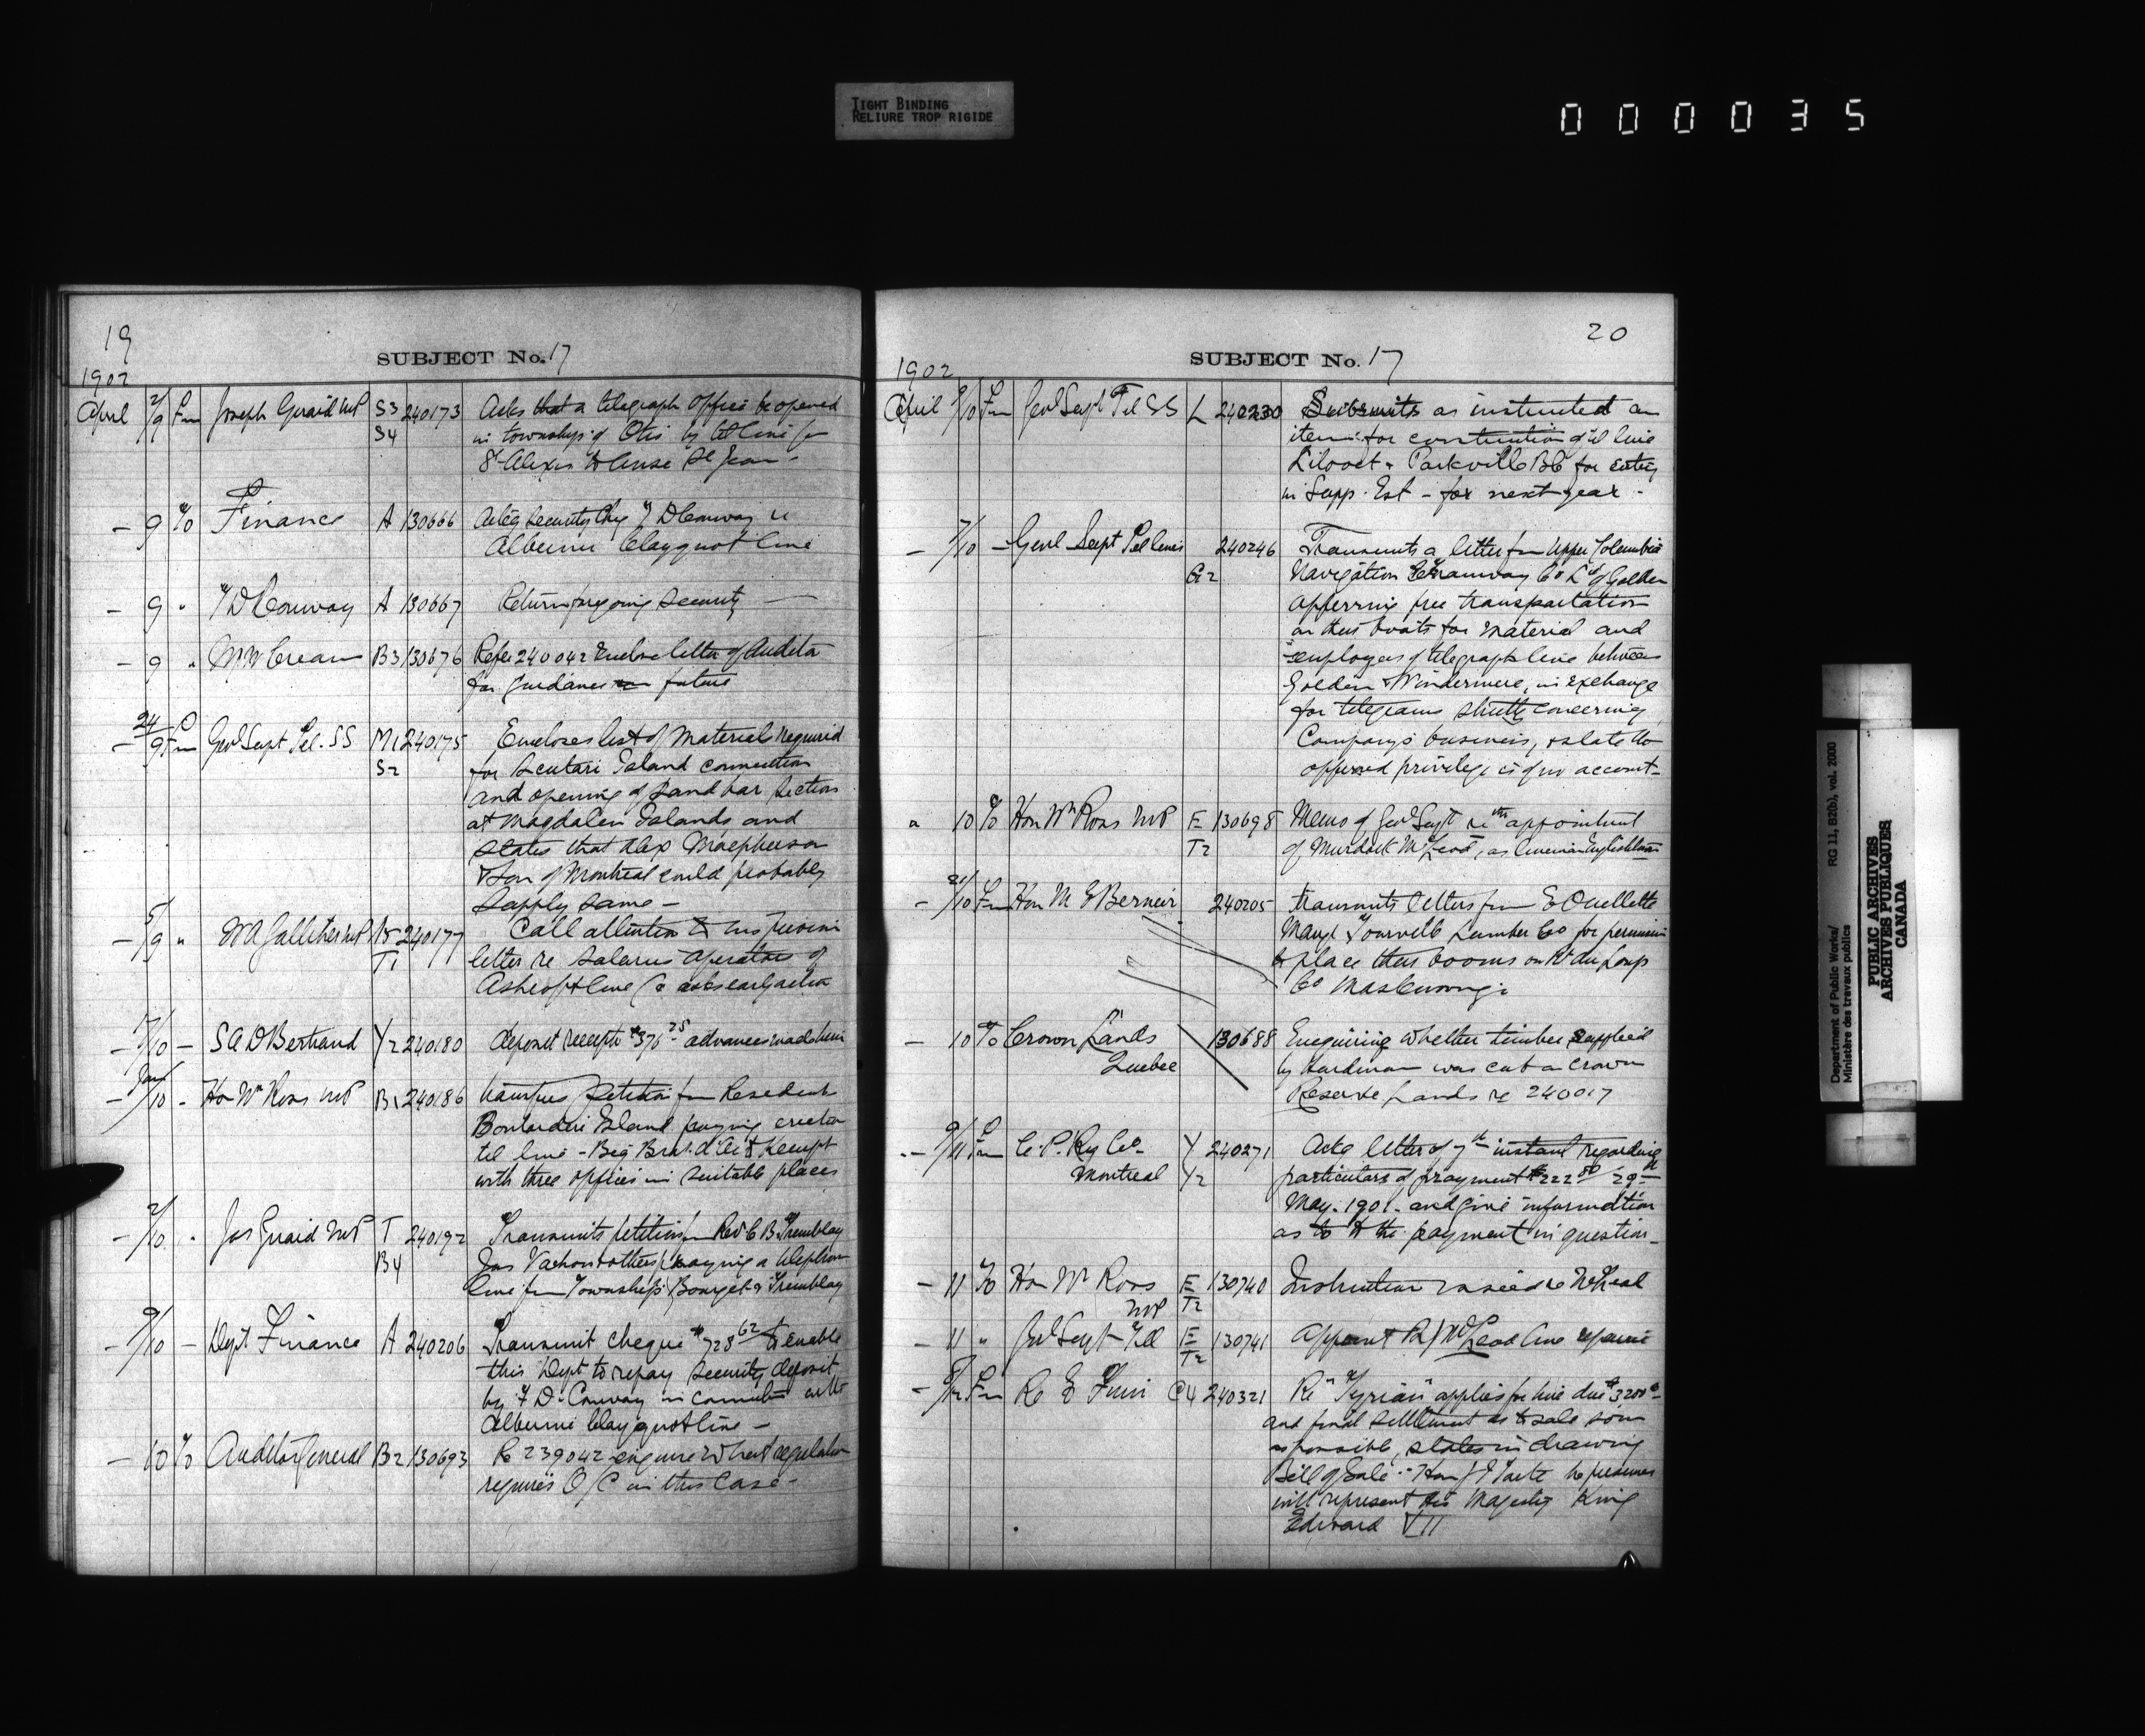 TIGHT BINDING
RELIURE TROP RIGIDE
000035
19
SUBJECT No. 17
1902
April 2/9 Fm Joseph Girard MP S3 240173 Asks that a telegraph office be opened
S4 in township of Otis by tel line fm
St Alexis to Anse St Jean -
- 9 To Finance A 130666 Ackg Security Chq of D Conway re
Alberni Clayquot line
- 9 " F D Conway A 130667 Return foregoing Security —
- 9 " W W Crean B3 130676 Refer 240042 Enclose letter of Auditor
for guidance in future
- 24/9 Fm Genl Supt Tel. SS M1 240175 Encloses list of Materials required
S2 for Scatari Island connection
and opening of Sand bar Section
at Magdalen Islands and
states that Alex Macpherson
& Son of Montreal could probably
supply same -
- 5/9 " W A Galliher MP 240177 Call attention to his previous
T1 letter re Salaries Operators of
Ashcroft line & asks early action
- 17/10 - S A D Bertrand Y2 240180 deposit receipt $376 25 advances made him
- /10 - Hon Wm Ross MP B1 240186 petition fm Resident
Boularderie Island praying erection
tel line - Big Bras d'Or & Kempt
with three offices in suitable places
- 2/10 " Jos Girard MP T 240192 Transmits petition fm Revd C B Tremblay
B4 Jas Vachon & others praying a telephone
line fm Townships Bourget & Tremblay
- 9/10 - Dept Finance A 240206 Transmit cheque $728 62 to enable
this Dept to repay Security deposit
by F D. Conway in connection with
Alberni Clayquot line -
- 10 To Auditor General B2 130693 Re 239042 enquire what regulation
requires O/C in this Case -
20
SUBJECT No. 17
1902
April 9/10 Fm Genl Supt Tel SS L 240230 Submits as instructed an
item for construction of tel line
Lilooet & Parkville BC for entry
in Supp. Est - for next year -
- 7/10 - Genl Supt Tel lines 240246 Transmits a letter fm Upper Columbia
G2 Navigation & Tramway Co Ltd of Golden
offering free transportation
on their boats for material and
employees of telegraph line between
Golden & Windermere, in exchange
for telegrams strictly concerning
Company's business, & state the
offered privilege is of no account -
" 10 To Hon Wm Ross MP E 130698 Memo of Genl Supt re the appointment
T2 of Murdock McLeod, as lineman Englishtown
- 21/10 Fm Hon M E Bernier 240205 Transmits letters from E Ouellette
Mangr Tourville Lumber Co for permission
to place their booms on Rr du Loup
Co Maskinongé
- 10 To Crown Lands 130688 Enquiring whether timber supplied
Quebec by hardiman was cut on Crown
Reserve Lands re 240017
- 9/11 Fm C. P. Ry Co - Y 240271 Ackg letter of 7th instant regarding
Montreal Y2 particulars of prayment $222 80 29th
May. 1901. and give information
as to the payment in question -
- 11 To Hon Wm Ross E 130740 Instruction issued re McLeod
MP T2
- 11 " Genl Supt Tel E 130741 Appoint McLeod line repairer
T2
- 5/12 Fm R E Finn C4 240321 Re "Tyrian" applies for hire due $3200 -
and final settlement as to sale soon
as possible, states in drawing
Bill of Sale - Hon J I Tarte he presumes
will represent His Majesty King
Edward VII
Department of Public Works/ RG 11, B2(b), vol. 2000
Ministère des travaux publics
PUBLIC ARCHIVES
ARCHIVES PUBLIQUES
CANADA